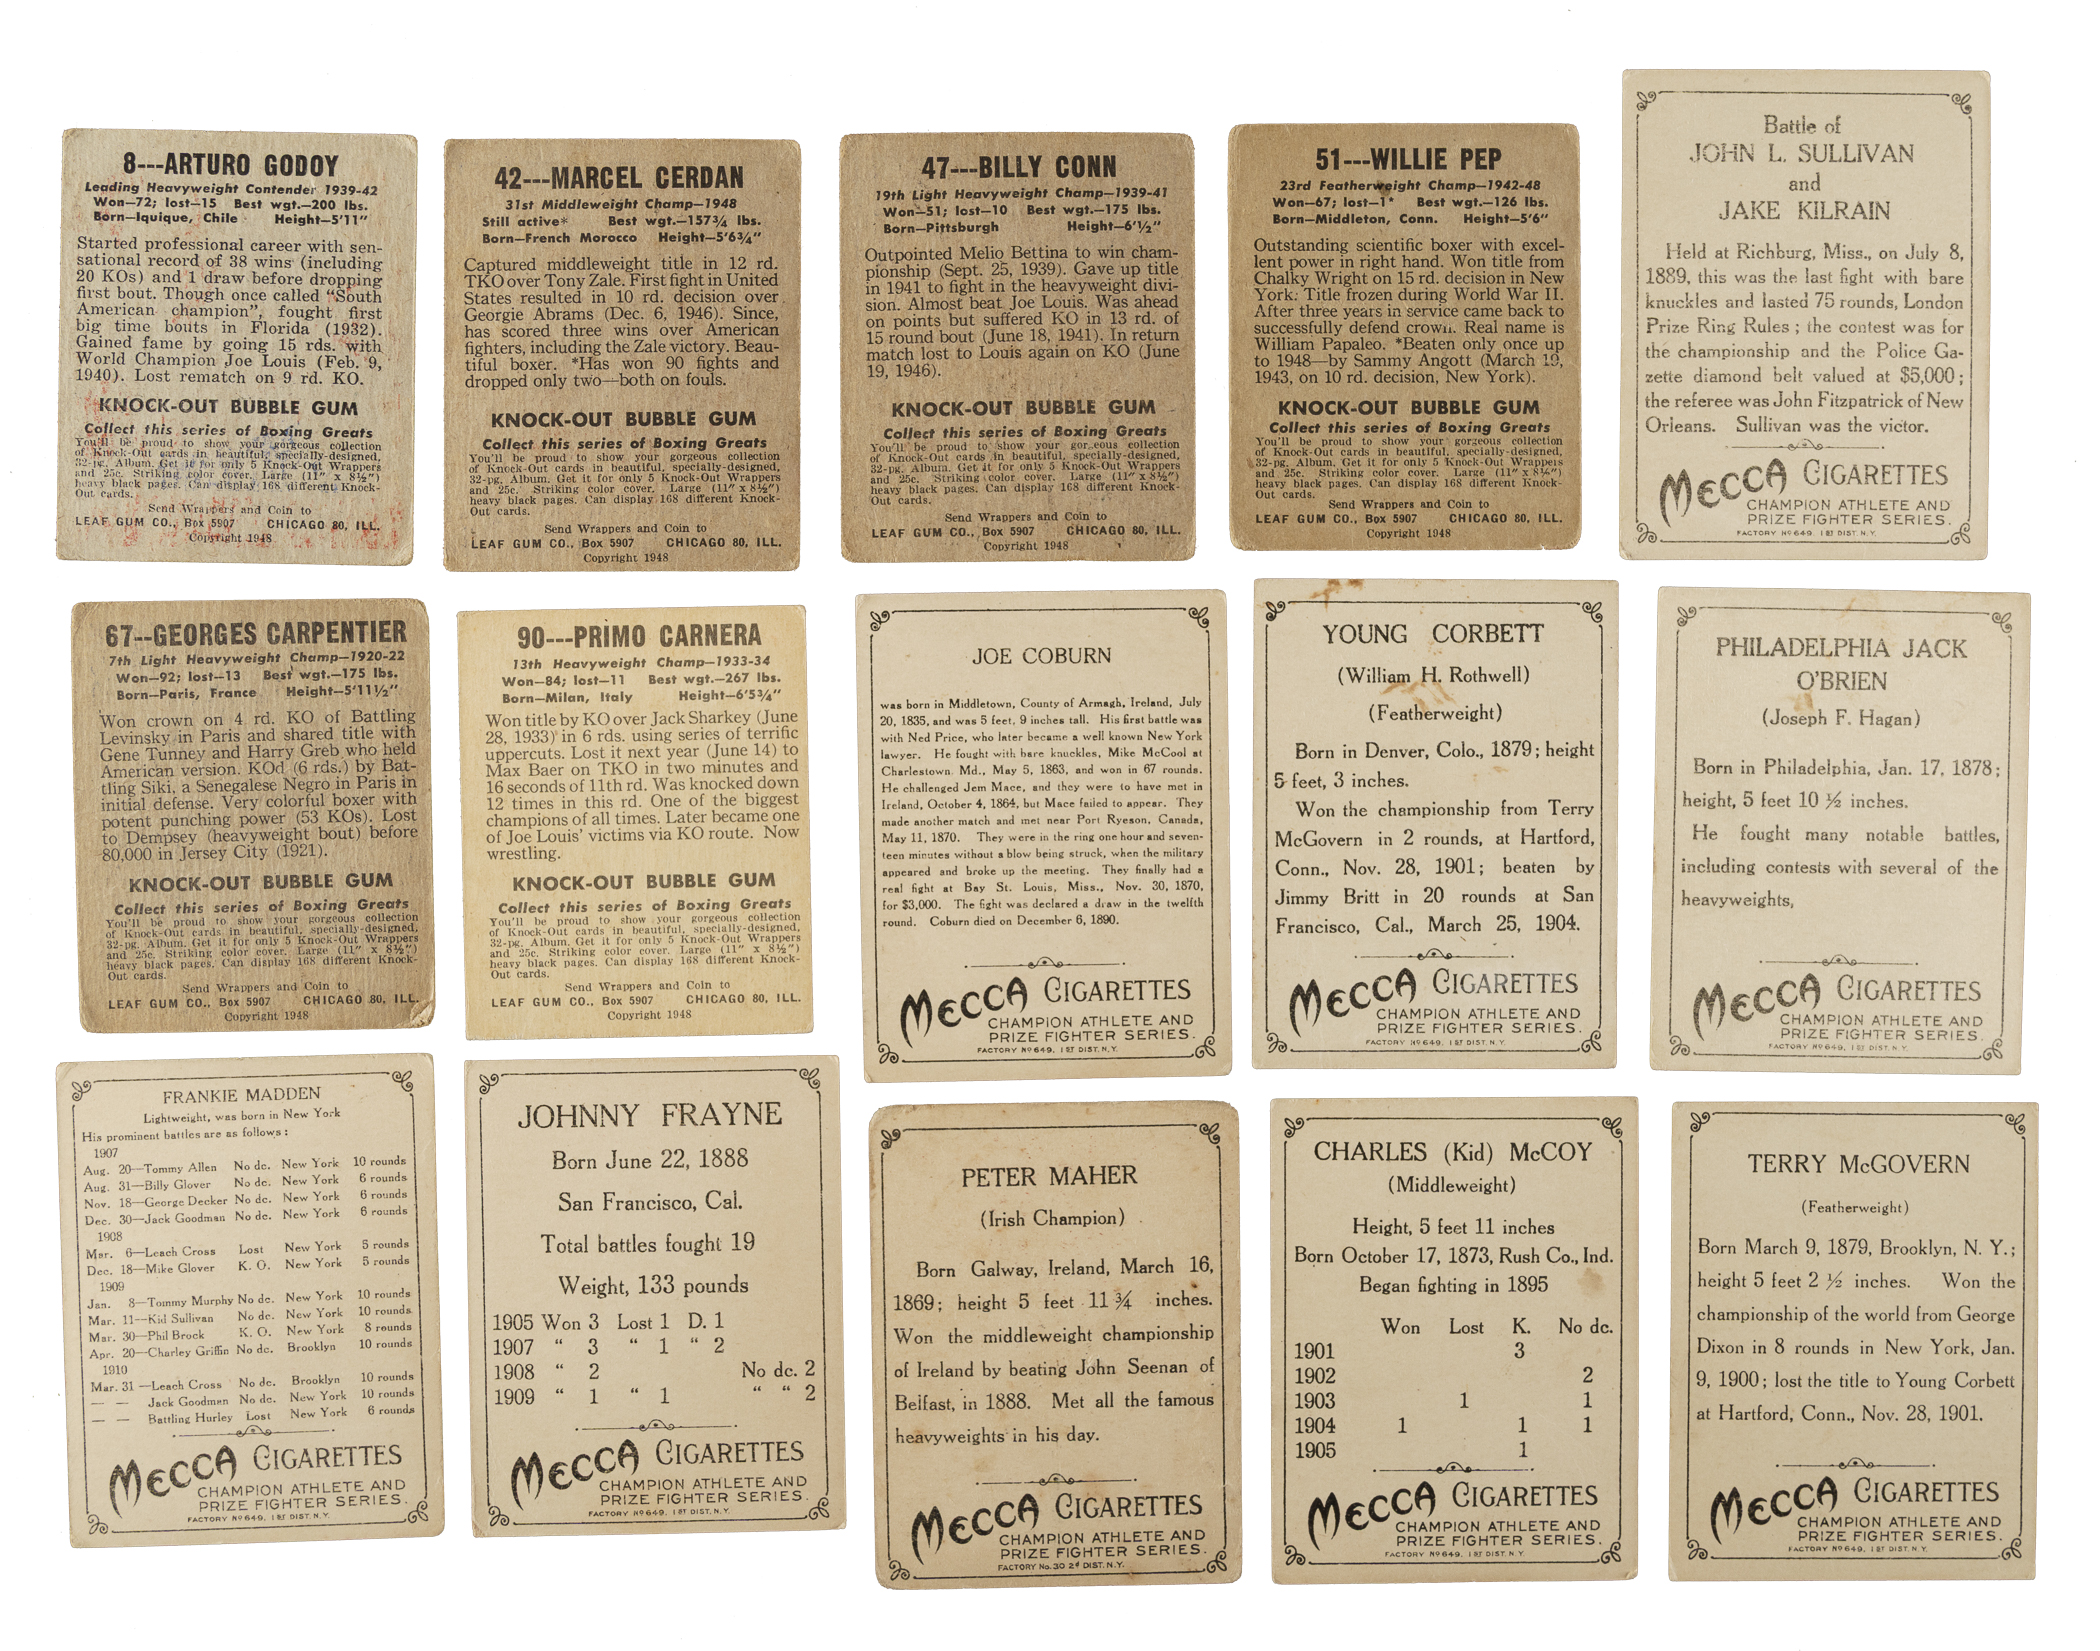 8---ARTURO GODOY
Leading Heavyweight Contender 1939-42
Won—72; lost—15 Best wgt.—200 lbs.
Born—Iquique, Chile Height—5'11"
Started professional career with sen-
sational record of 38 wins (including
20 KOs) and 1 draw before dropping
first bout. Though once called "South
American champion", fought first
big time bouts in Florida (1932).
Gained fame by going 15 rds. with
World Champion Joe Louis (Feb. 9,
1940). Lost rematch on 9 rd. KO.
KNOCK-OUT BUBBLE GUM
Collect this series of Boxing Greats
You'll be proud to show your gorgeous collection
of Knock-Out cards in beautiful, specially-designed,
32-pg. Album. Get it for only 5 Knock-Out Wrappers
and 25c. Striking color cover. Large (11" x 8½")
heavy black pages. Can display 168 different Knock-
Out cards.
Send Wrappers and Coin to
LEAF GUM CO., Box 5907 CHICAGO 80, ILL.
Copyright 1948
42---MARCEL CERDAN
31st Middleweight Champ—1948
Still active* Best wgt.—157¾ lbs.
Born—French Morocco Height—5'6¾"
Captured middleweight title in 12 rd.
TKO over Tony Zale. First fight in United
States resulted in 10 rd. decision over
Georgie Abrams (Dec. 6, 1946). Since,
has scored three wins over American
fighters, including the Zale victory. Beau-
tiful boxer. *Has won 90 fights and
dropped only two—both on fouls.
KNOCK-OUT BUBBLE GUM
Collect this series of Boxing Greats
You'll be proud to show your gorgeous collection
of Knock-Out cards in beautiful, specially-designed,
32-pg. Album. Get it for only 5 Knock-Out Wrappers
and 25c. Striking color cover. Large (11" x 8½")
heavy black pages. Can display 168 different Knock-
Out cards.
Send Wrappers and Coin to
LEAF GUM CO., Box 5907 CHICAGO 80, ILL.
Copyright 1948
47---BILLY CONN
19th Light Heavyweight Champ—1939-41
Won—51; lost—10 Best wgt.—175 lbs.
Born—Pittsburgh Height—6'½"
Outpointed Melio Bettina to win cham-
pionship (Sept. 25, 1939). Gave up title
in 1941 to fight in the heavyweight divi-
sion. Almost beat Joe Louis. Was ahead
on points but suffered KO in 13 rd. of
15 round bout (June 18, 1941). In return
match lost to Louis again on KO (June
19, 1946).
KNOCK-OUT BUBBLE GUM
Collect this series of Boxing Greats
You'll be proud to show your gorgeous collection
of Knock-Out cards in beautiful, specially-designed,
32-pg. Album. Get it for only 5 Knock-Out Wrappers
and 25c. Striking color cover. Large (11" x 8½")
heavy black pages. Can display 168 different Knock-
Out cards.
Send Wrappers and Coin to
LEAF GUM CO., Box 5907 CHICAGO 80, ILL.
Copyright 1948
51---WILLIE PEP
23rd Featherweight Champ—1942-48
Won—67; lost—1* Best wgt.—126 lbs.
Born—Middleton, Conn. Height—5'6"
Outstanding scientific boxer with excel-
lent power in right hand. Won title from
Chalky Wright on 15 rd. decision in New
York. Title frozen during World War II.
After three years in service came back to
successfully defend crown. Real name is
William Papaleo. *Beaten only once up
to 1948—by Sammy Angott (March 19,
1943, on 10 rd. decision, New York).
KNOCK-OUT BUBBLE GUM
Collect this series of Boxing Greats
You'll be proud to show your gorgeous collection
of Knock-Out cards in beautiful, specially-designed,
32-pg. Album. Get it for only 5 Knock-Out Wrappers
and 25c. Striking color cover. Large (11" x 8½")
heavy black pages. Can display 168 different Knock-
Out cards.
Send Wrappers and Coin to
LEAF GUM CO., Box 5907 CHICAGO 80, ILL.
Copyright 1948
Battle of
JOHN L. SULLIVAN
and
JAKE KILRAIN
Held at Richburg, Miss., on July 8,
1889, this was the last fight with bare
knuckles and lasted 75 rounds, London
Prize Ring Rules; the contest was for
the championship and the Police Ga-
zette diamond belt valued at $5,000;
the referee was John Fitzpatrick of New
Orleans. Sullivan was the victor.
MECCA CIGARETTES
CHAMPION ATHLETE AND
PRIZE FIGHTER SERIES.
FACTORY Nº 649, 1ST DIST. N.Y.
67--GEORGES CARPENTIER
7th Light Heavyweight Champ—1920-22
Won—92; lost—13 Best wgt.—175 lbs.
Born—Paris, France Height—5'11½"
Won crown on 4 rd. KO of Battling
Levinsky in Paris and shared title with
Gene Tunney and Harry Greb who held
American version. KOd (6 rds.) by Bat-
tling Siki, a Senegalese Negro in Paris in
initial defense. Very colorful boxer with
potent punching power (53 KOs). Lost
to Dempsey (heavyweight bout) before
80,000 in Jersey City (1921).
KNOCK-OUT BUBBLE GUM
Collect this series of Boxing Greats
You'll be proud to show your gorgeous collection
of Knock-Out cards in beautiful, specially-designed,
32-pg. Album. Get it for only 5 Knock-Out Wrappers
and 25c. Striking color cover. Large (11" x 8½")
heavy black pages. Can display 168 different Knock-
Out cards.
Send Wrappers and Coin to
LEAF GUM CO., Box 5907 CHICAGO 80, ILL.
Copyright 1948
90---PRIMO CARNERA
13th Heavyweight Champ—1933-34
Won—84; lost—11 Best wgt.—267 lbs.
Born—Milan, Italy Height—6'5¾"
Won title by KO over Jack Sharkey (June
28, 1933) in 6 rds. using series of terrific
uppercuts. Lost it next year (June 14) to
Max Baer on TKO in two minutes and
16 seconds of 11th rd. Was knocked down
12 times in this rd. One of the biggest
champions of all times. Later became one
of Joe Louis' victims via KO route. Now
wrestling.
KNOCK-OUT BUBBLE GUM
Collect this series of Boxing Greats
You'll be proud to show your gorgeous collection
of Knock-Out cards in beautiful, specially-designed,
32-pg. Album. Get it for only 5 Knock-Out Wrappers
and 25c. Striking color cover. Large (11" x 8½")
heavy black pages. Can display 168 different Knock-
Out cards.
Send Wrappers and Coin to
LEAF GUM CO., Box 5907 CHICAGO 80, ILL.
Copyright 1948
JOE COBURN
was born in Middletown, County of Armagh, Ireland, July
20, 1835, and was 5 feet, 9 inches tall. His first battle was
with Ned Price, who later became a well known New York
lawyer. He fought with bare knuckles, Mike McCool at
Charlestown Md., May 5, 1863, and won in 67 rounds.
He challenged Jem Mace, and they were to have met in
Ireland, October 4, 1864, but Mace failed to appear. They
made another match and met near Port Ryeson, Canada,
May 11, 1870. They were in the ring one hour and seven-
teen minutes without a blow being struck, when the military
appeared and broke up the meeting. They finally had a
real fight at Bay St. Louis, Miss., Nov. 30, 1870,
for $3,000. The fight was declared a draw in the twelfth
round. Coburn died on December 6, 1890.
MECCA CIGARETTES
CHAMPION ATHLETE AND
PRIZE FIGHTER SERIES.
FACTORY Nº 649, 1ST DIST. N.Y.
YOUNG CORBETT
(William H. Rothwell)
(Featherweight)
Born in Denver, Colo., 1879; height
5 feet, 3 inches.
Won the championship from Terry
McGovern in 2 rounds, at Hartford,
Conn., Nov. 28, 1901; beaten by
Jimmy Britt in 20 rounds at San
Francisco, Cal., March 25, 1904.
MECCA CIGARETTES
CHAMPION ATHLETE AND
PRIZE FIGHTER SERIES.
FACTORY Nº 649, 1ST DIST. N.Y.
PHILADELPHIA JACK
O'BRIEN
(Joseph F. Hagan)
Born in Philadelphia, Jan. 17, 1878;
height, 5 feet 10 ½ inches.
He fought many notable battles,
including contests with several of the
heavyweights,
MECCA CIGARETTES
CHAMPION ATHLETE AND
PRIZE FIGHTER SERIES.
FACTORY Nº 649, 1ST DIST. N.Y.
FRANKIE MADDEN
Lightweight, was born in New York
His prominent battles are as follows:
1907
Aug. 20—Tommy Allen No dc. New York 10 rounds
Aug. 31—Billy Glover No dc. New York 6 rounds
Nov. 18—George Decker No dc. New York 6 rounds
Dec. 30—Jack Goodman No dc. New York 6 rounds
1908
Mar. 6—Leach Cross Lost New York 5 rounds
Dec. 18—Mike Glover K. O. New York 5 rounds
1909
Jan. 8—Tommy Murphy No dc. New York 10 rounds
Mar. 11—Kid Sullivan No dc. New York 10 rounds
Mar. 30—Phil Brock K. O. New York 8 rounds
Apr. 20—Charley Griffin No dc. Brooklyn 10 rounds
1910
Mar. 31—Leach Cross No dc. Brooklyn 10 rounds
— — Jack Goodman No dc. New York 10 rounds
— — Battling Hurley Lost New York 6 rounds
MECCA CIGARETTES
CHAMPION ATHLETE AND
PRIZE FIGHTER SERIES.
FACTORY Nº 649, 1ST DIST. N.Y.
JOHNNY FRAYNE
Born June 22, 1888
San Francisco, Cal.
Total battles fought 19
Weight, 133 pounds
1905 Won 3 Lost 1 D. 1
1907 " 3 " 1 " 2
1908 " 2 No dc. 2
1909 " 1 " 1 " " 2
MECCA CIGARETTES
CHAMPION ATHLETE AND
PRIZE FIGHTER SERIES.
FACTORY Nº 649, 1ST DIST. N.Y.
PETER MAHER
(Irish Champion)
Born Galway, Ireland, March 16,
1869; height 5 feet 11 ¾ inches.
Won the middleweight championship
of Ireland by beating John Seenan of
Belfast, in 1888. Met all the famous
heavyweights in his day.
MECCA CIGARETTES
CHAMPION ATHLETE AND
PRIZE FIGHTER SERIES.
FACTORY No. 30 2d DIST. N.Y.
CHARLES (Kid) McCOY
(Middleweight)
Height, 5 feet 11 inches
Born October 17, 1873, Rush Co., Ind.
Began fighting in 1895
Won Lost K. No dc.
1901 3
1902 2
1903 1 1
1904 1 1 1
1905 1
MECCA CIGARETTES
CHAMPION ATHLETE AND
PRIZE FIGHTER SERIES.
FACTORY Nº 649, 1ST DIST. N.Y.
TERRY McGOVERN
(Featherweight)
Born March 9, 1879, Brooklyn, N. Y.;
height 5 feet 2 ½ inches. Won the
championship of the world from George
Dixon in 8 rounds in New York, Jan.
9, 1900; lost the title to Young Corbett
at Hartford, Conn., Nov. 28, 1901.
MECCA CIGARETTES
CHAMPION ATHLETE AND
PRIZE FIGHTER SERIES.
FACTORY Nº 649, 1ST DIST. N.Y.